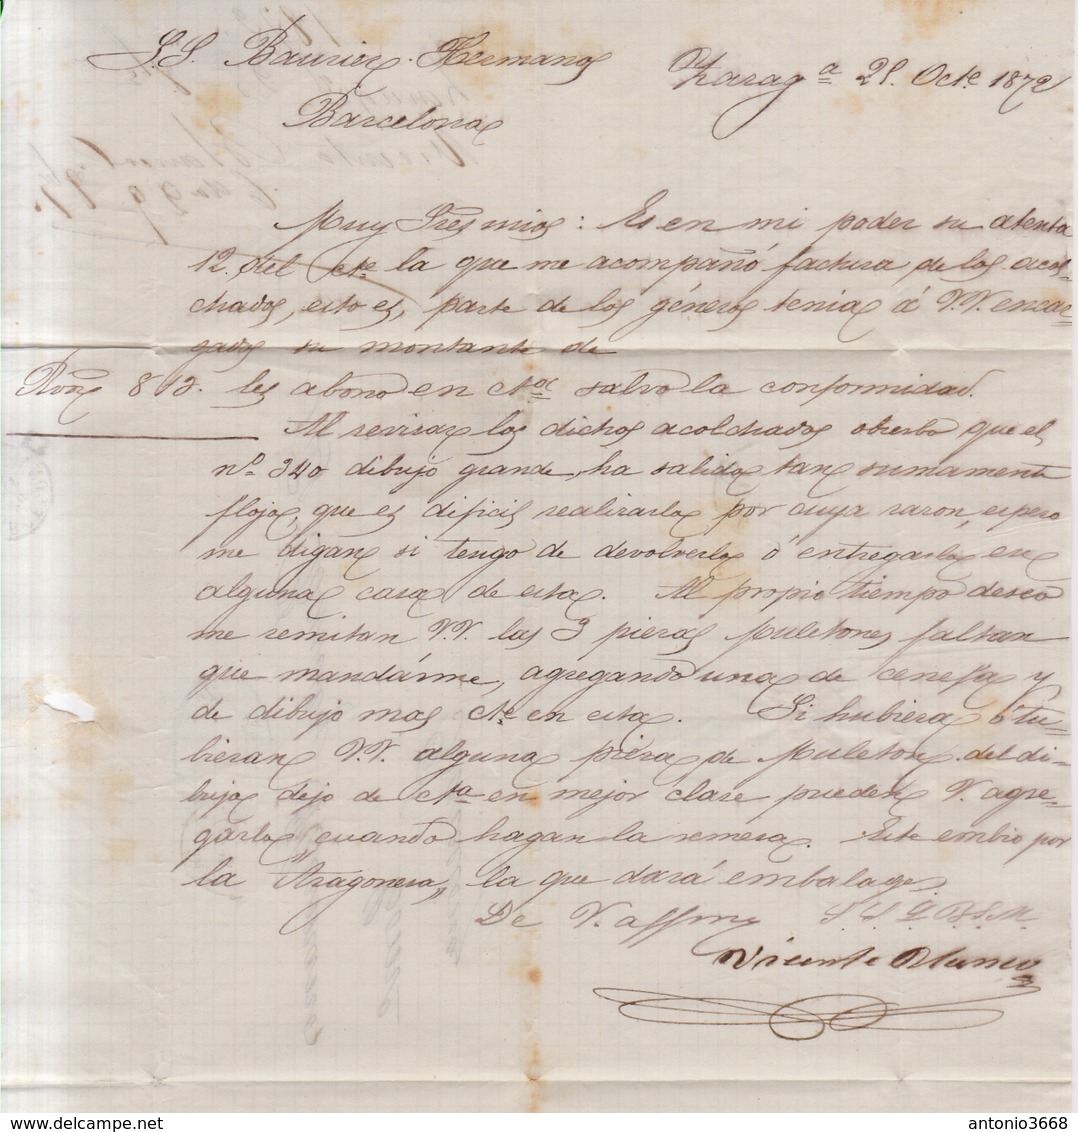 S.S. Baurier Hermanos
Zarag.a 21. Oct.e 1872
Barcelona
Muy Sres mios: Es en mi poder su atenta
12. del cte la que me acompañó factura, de los acol-
chados, esto es, parte de los géneros tenia á VV. encar-
gados su montante de
Rvon 812. les abono en cta salvo la conformidad.
Al revisar los dichos acolchados observo que el
nº 340 dibujo grande, ha salido tan sumamente
flojo, que es dificil realizarlo por cuya razon, espero
me digan si tengo de devolverlo ó entregarlo en
alguna casa de esta. Al propio tiempo deseo
me remitan VV. las 3 piezas muletones faltan
que mandárme, agregando una de cenefa y
de dibujo mas cte en esta. Si hubiera ó tu-
bieran VV. alguna pieza de muleton del di-
bujo dejo de cta en mejor clase pueden V. agre-
garlo cuando hagan la remesa. Este embio por
la "Aragonesa", la que dará embalages
De V. affmo S.S.Q.B.S.M.
Vicente Blanco
antonio3668